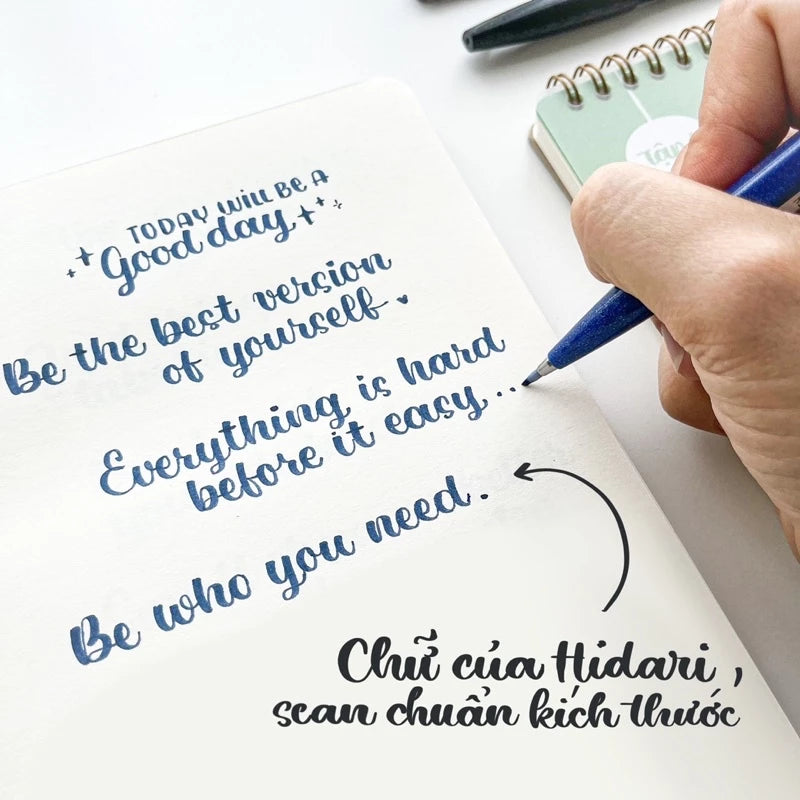 TODAY WILL BE A
Good day
Be the best version
of yourself
Everything is hard
before it easy...
Be who you need.
Chữ của Hidari,
scan chuẩn kích thước